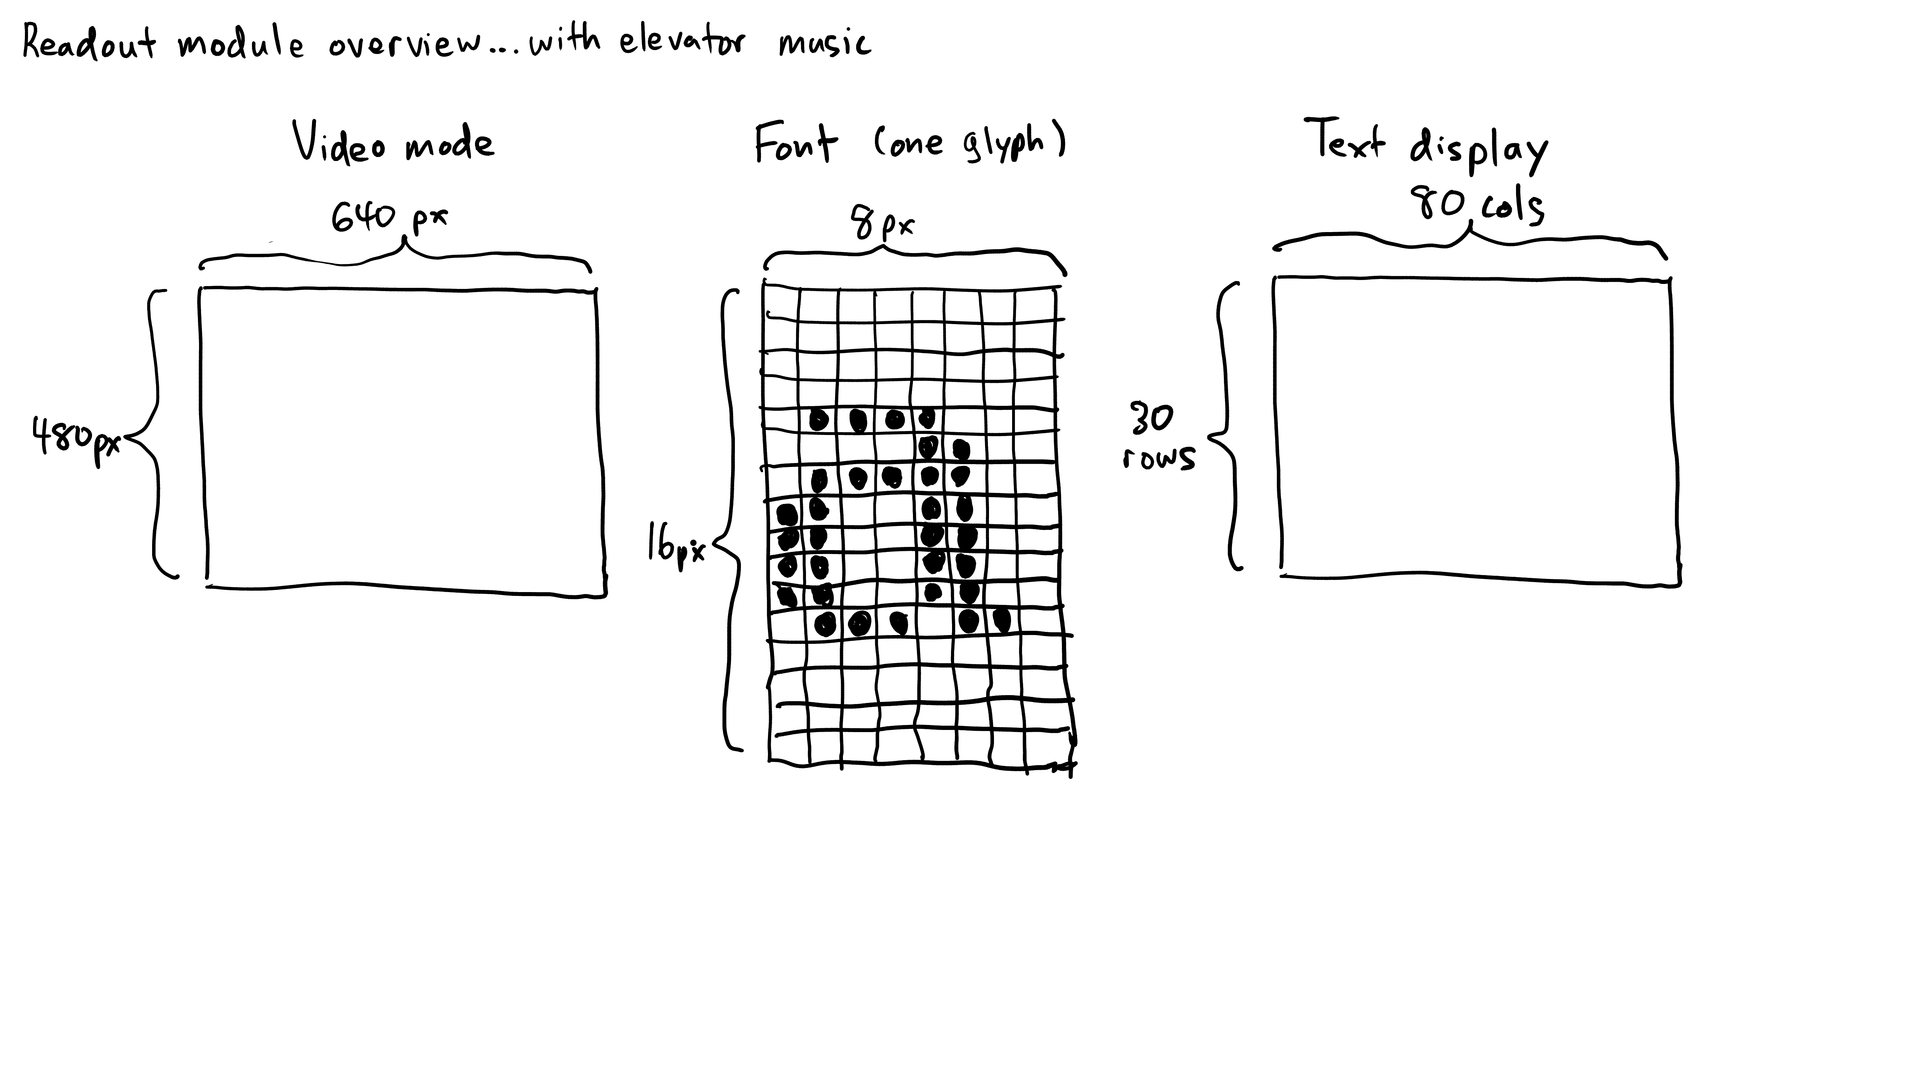 Readout module overview...with elevator music
Video mode
640 px
480px
Font (one glyph)
8px
16px
Text display
80 cols
30
rows